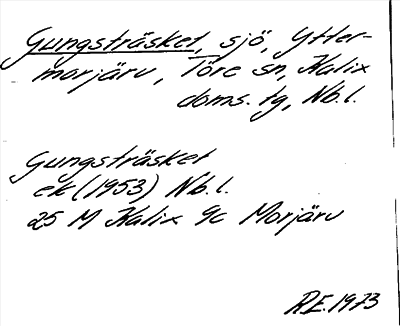 Gungsträsket, sjö, Ytter-
morjärv, Töre sn, Kalix
doms. tg, Nb. l.
Gungsträsket
ek (1953) Nb. l.
25 M Kalix 9c Morjärv
R.E. 1973